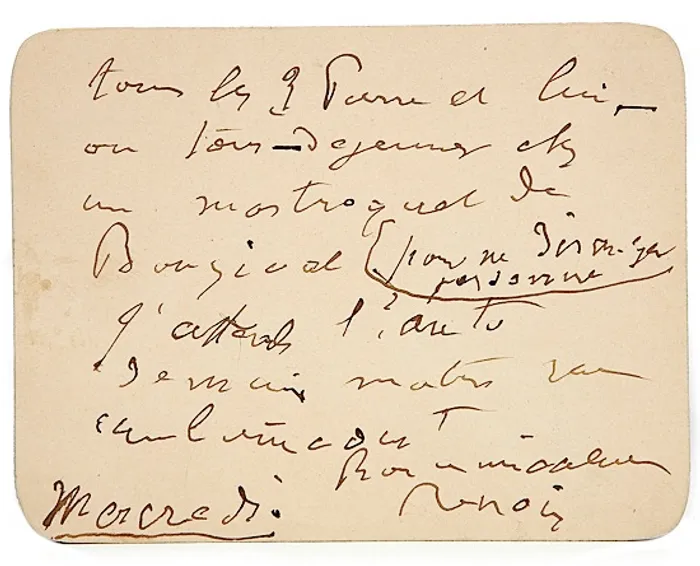 tous les 3 Pierre et lui,
ou tous dejeuner chez
un mastroquet de
Bougival (pour ne déranger
personne
J'attends l'auto
demain matin rue
caulaincourt
Renoir
Mercredi.